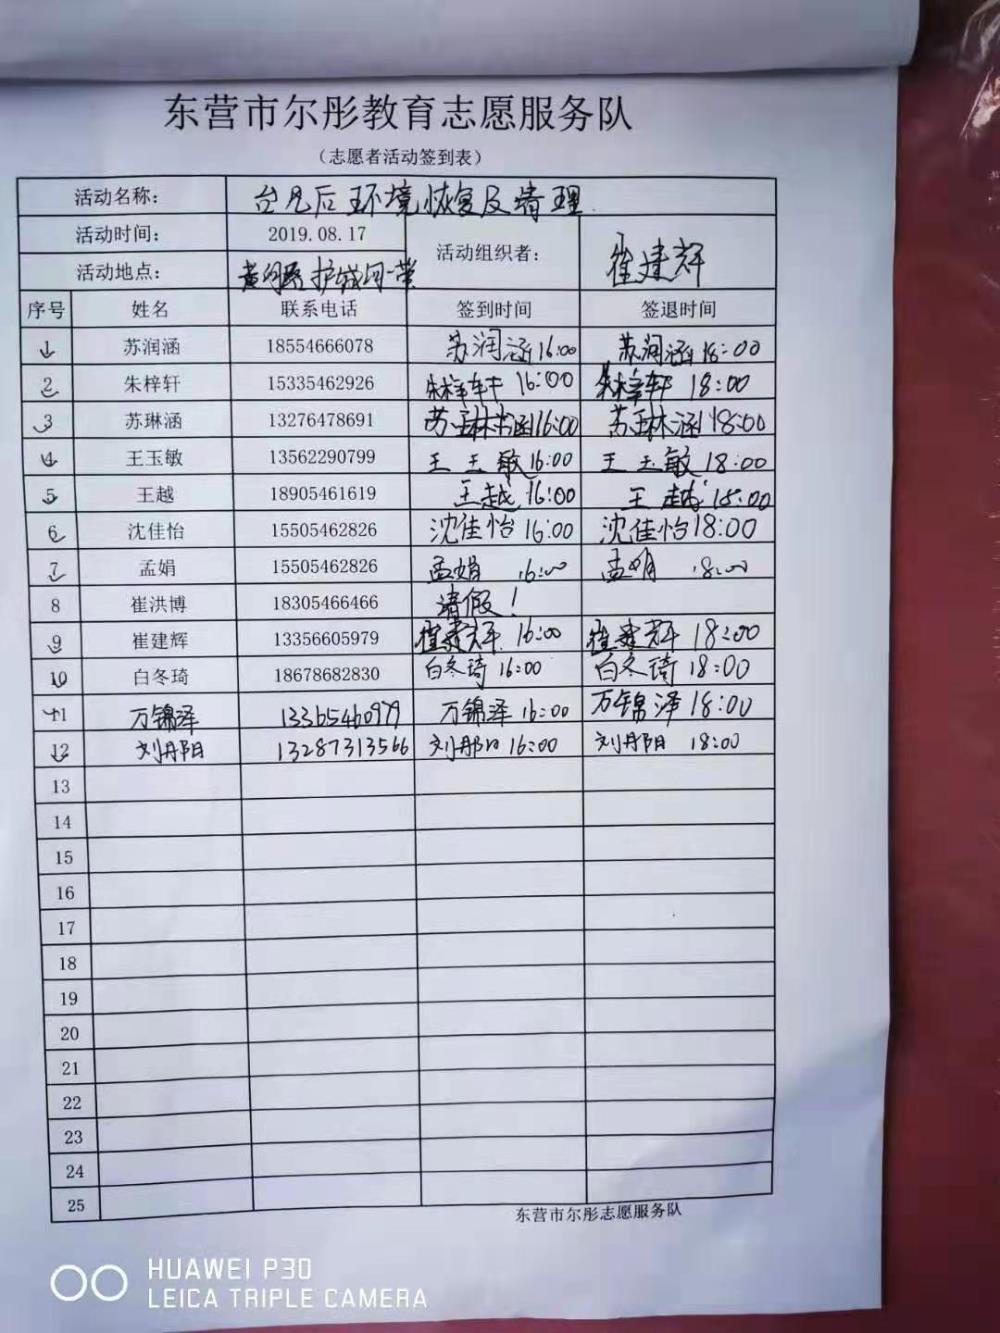 东营市尔彤教育志愿服务队
（志愿者活动签到表）
活动名称： 台风后环境恢复及清理
活动时间： 2019.08.17 活动组织者： 崔建辉
活动地点： 黄河路护城河一带
序号 姓名 联系电话 签到时间 签退时间
1 苏润涵 18554666078 苏润涵 16:00 苏润涵 18:00
2 朱梓轩 15335462926 朱梓轩 16:00 朱梓轩 18:00
3 苏琳涵 13276478691 苏琳涵 16:00 苏琳涵 18:00
4 王玉敏 13562290799 王玉敏 16:00 王玉敏 18:00
5 王越 18905461619 王越 16:00 王越 18:00
6 沈佳怡 15505462826 沈佳怡 16:00 沈佳怡 18:00
7 孟娟 15505462826 孟娟 16:00 孟娟 18:00
8 崔洪博 18305466466 请假！
9 崔建辉 13356605979 崔建辉 16:00 崔建辉 18:00
10 白冬琦 18678682830 白冬琦 16:00 白冬琦 18:00
11 万锦泽 13365460979 万锦泽 16:00 万锦泽 18:00
12 刘丹阳 13287313566 刘丹阳 16:00 刘丹阳 18:00
13
14
15
16
17
18
19
20
21
22
23
24
25
东营市尔彤志愿服务队
HUAWEI P30
LEICA TRIPLE CAMERA